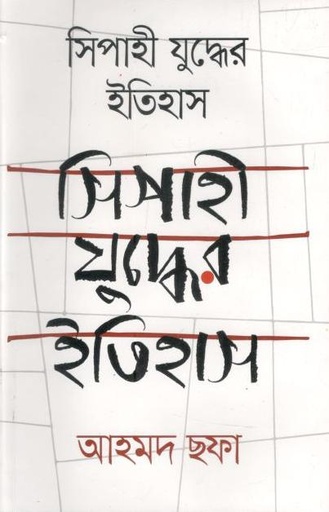 সিপাহী যুদ্ধের
ইতিহাস
সিপাহী
যুদ্ধের
ইতিহাস
আহমদ ছফা